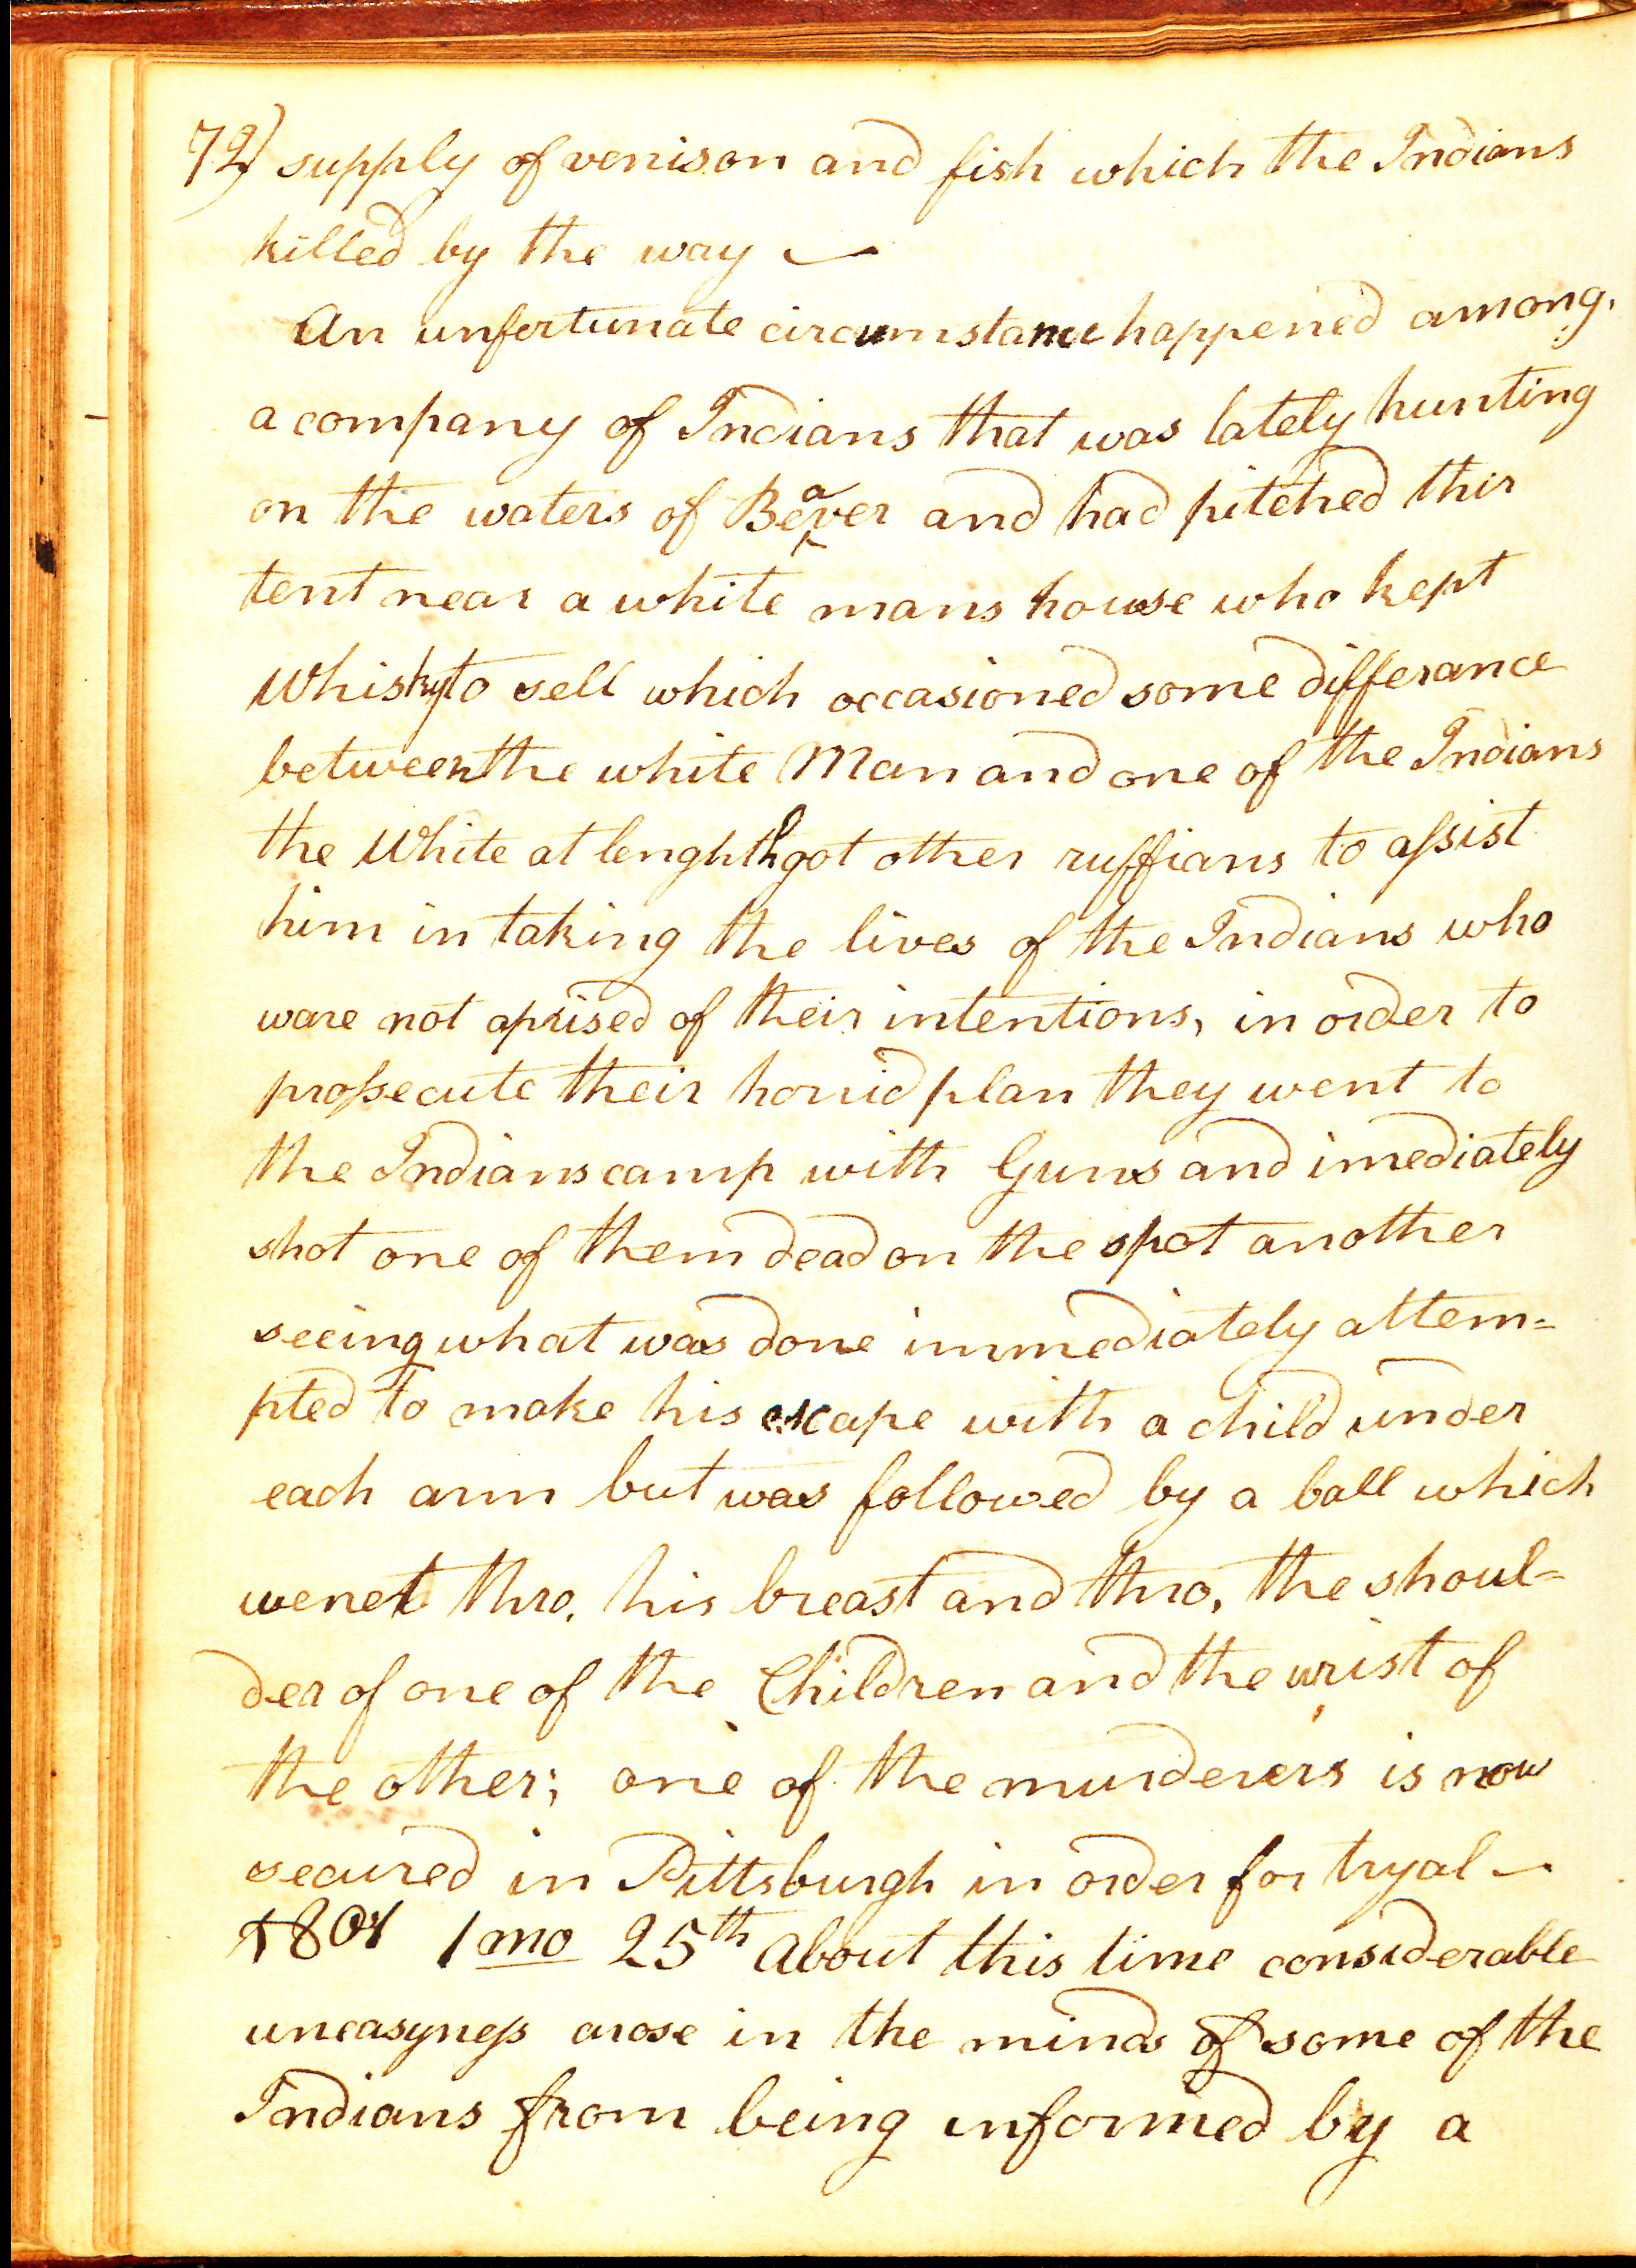 72) supply of venison and fish which the Indians
killed by the way —
An unfortunate circumstance happened among
a company of Indians that was lately hunting
on the waters of Beaver and had pitched thir
tent near a white mans house who kept
Whisky to sell which occasioned some differance
between the white Man and one of the Indians
the White at lenghth got other ruffians to assist
him in taking the lives of the Indians who
ware not aprised of their intentions, in order to
prossecute their horrid plan they went to
the Indians camp with Guns and imediately
shot one of them dead on the spot another
seeing what was done immediately attem=
pted to make his escape with a child under
each arm but was followed by a ball which
went thro. his breast and thro, the shoul=
der of one of the Children and the wrist of
the other; one of the murderers is now
secured in Pittsburgh in order for tryal —
1801 1 mo 25th About this time considerable
uneasyness arose in the minds of some of the
Indians from being informed by a